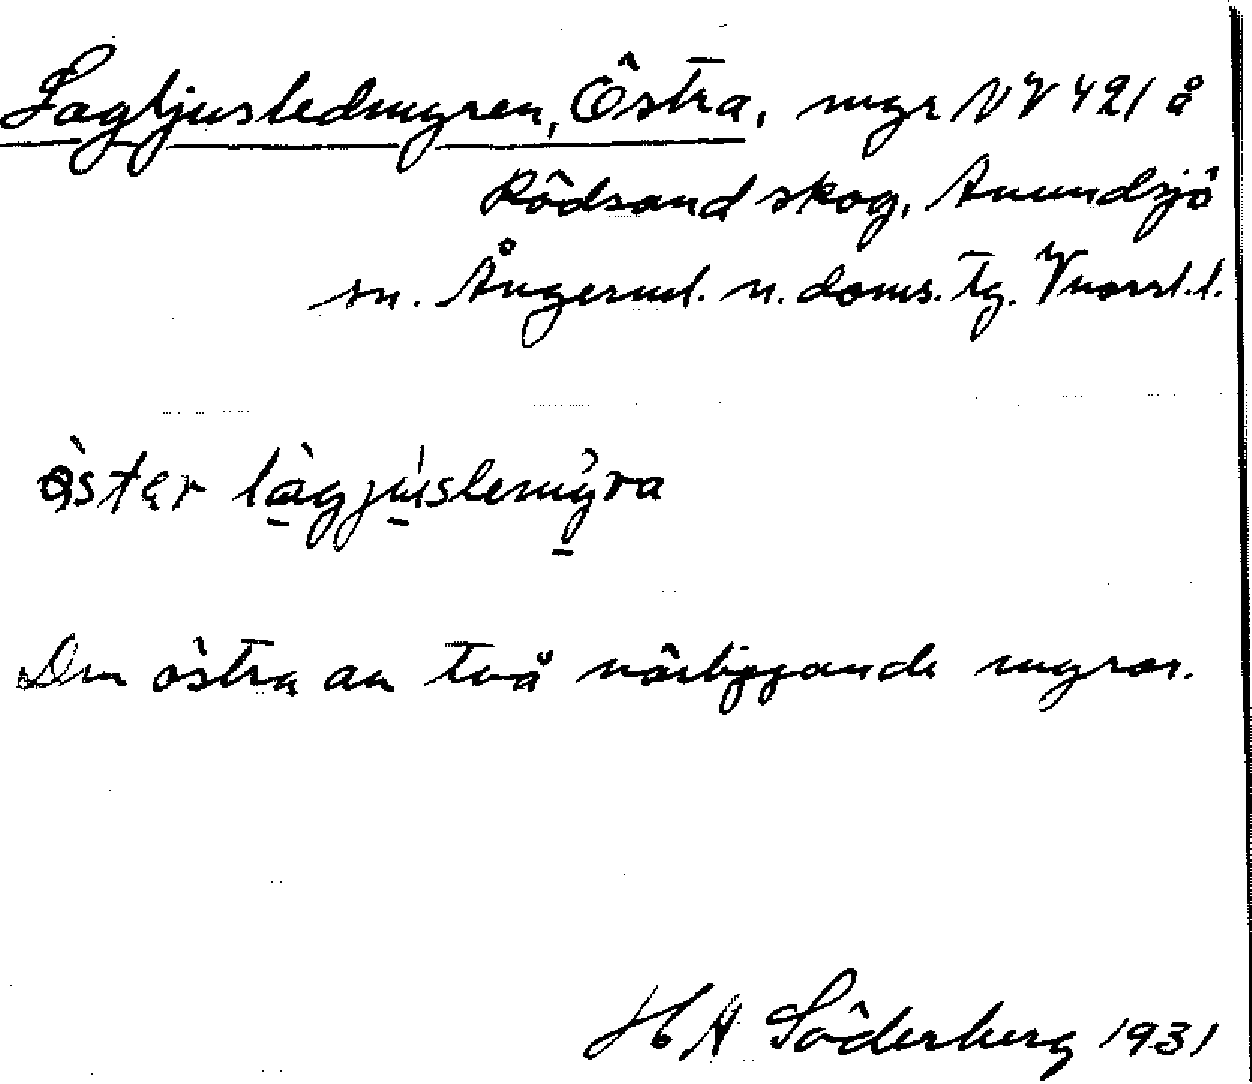 Lagljusledmyren, Östra, myr NV 421 å
Rödsand skog, Anundsjö
sn. Ångerml. n. doms. tg. Vnorrl. l.
öster lagjuslemyra
Den östra av två närliggande myrar.
H A Söderberg 1931